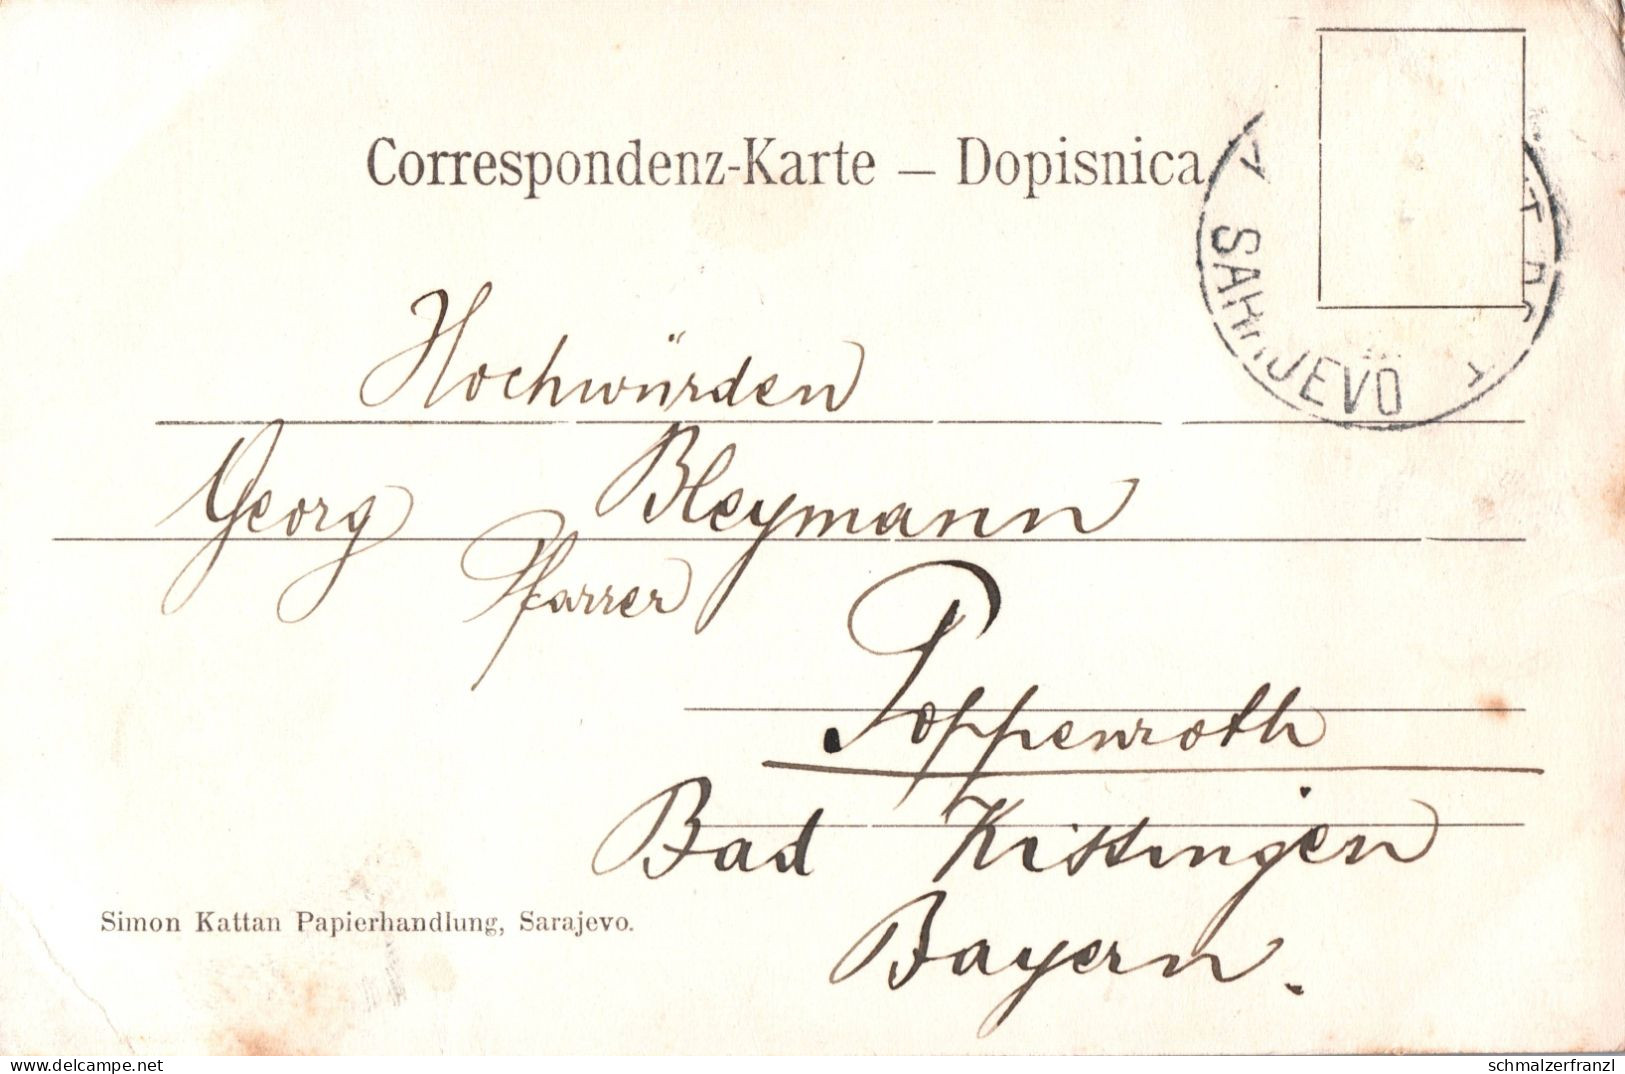 Correspondenz-Karte — Dopisnica
SARAJEVO
Hochwürden
Georg Bleymann
Pfarrer
Poppenroth
Bad Kissingen
Bayern.
Simon Kattan Papierhandlung, Sarajevo.
delcampe.net
schmalzerfranzl